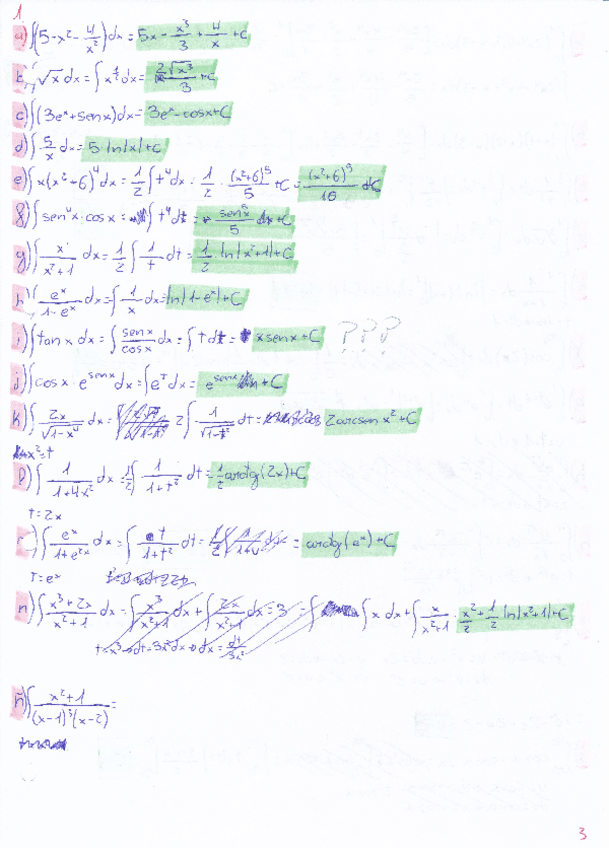 1
a) ∫(5-x²-4/x²)dx = 5x - x³/3 + 4/x + C
b) ∫√x dx = ∫x^(1/2) dx = 2√x³/3 + C
c) ∫(3eˣ+senx)dx = 3eˣ-cosx+C
d) ∫5/x dx = 5 ln|x|+C
e) ∫x(x²+6)⁴dx = 1/2 ∫t⁴dx = 1/2 · (x²+6)⁵/5 + C = (x²+6)⁵/10 + C
f) ∫sen⁴x·cosx = ∫t⁴dt = sen⁵x/5 + C
g) ∫x/(x²+1) dx = 1/2 ∫1/t dt = 1/2 ln|x²+1|+C
h) ∫eˣ/(1-eˣ) dx = ∫1/x dx = ln|1-eˣ|+C
i) ∫tanx dx = ∫senx/cosx dx = ∫t dt = x senx+C ???
j) ∫cosx·e^(senx)dx = ∫eᵗdx = e^(senx)+C
k) ∫2x/√(1-x⁴) dx = 2∫1/√(1-t²) dt = 2arcsen x²+C
x²=t
l) ∫1/(1+4x²) dx = 1/2 ∫1/(1+t²) dt = 1/2 arctg(2x)+C
t=2x
∫eˣ/(1+e²ˣ) dx = ∫t/(1+t²) dt = arctg(eˣ)+C
t=eˣ
n) ∫(x³+2x)/(x²+1) dx = ∫x³/(x²+1) dx + ∫2x/(x²+1) dx = 3 = ∫x dx + ∫x/(x²+1) = x²/2 + 1/2 ln|x²+1|+C
t=x³→dt=3x²dx→dx=dt/3x²
ñ) ∫(x²+1)/((x-1)³(x-2)) =
3